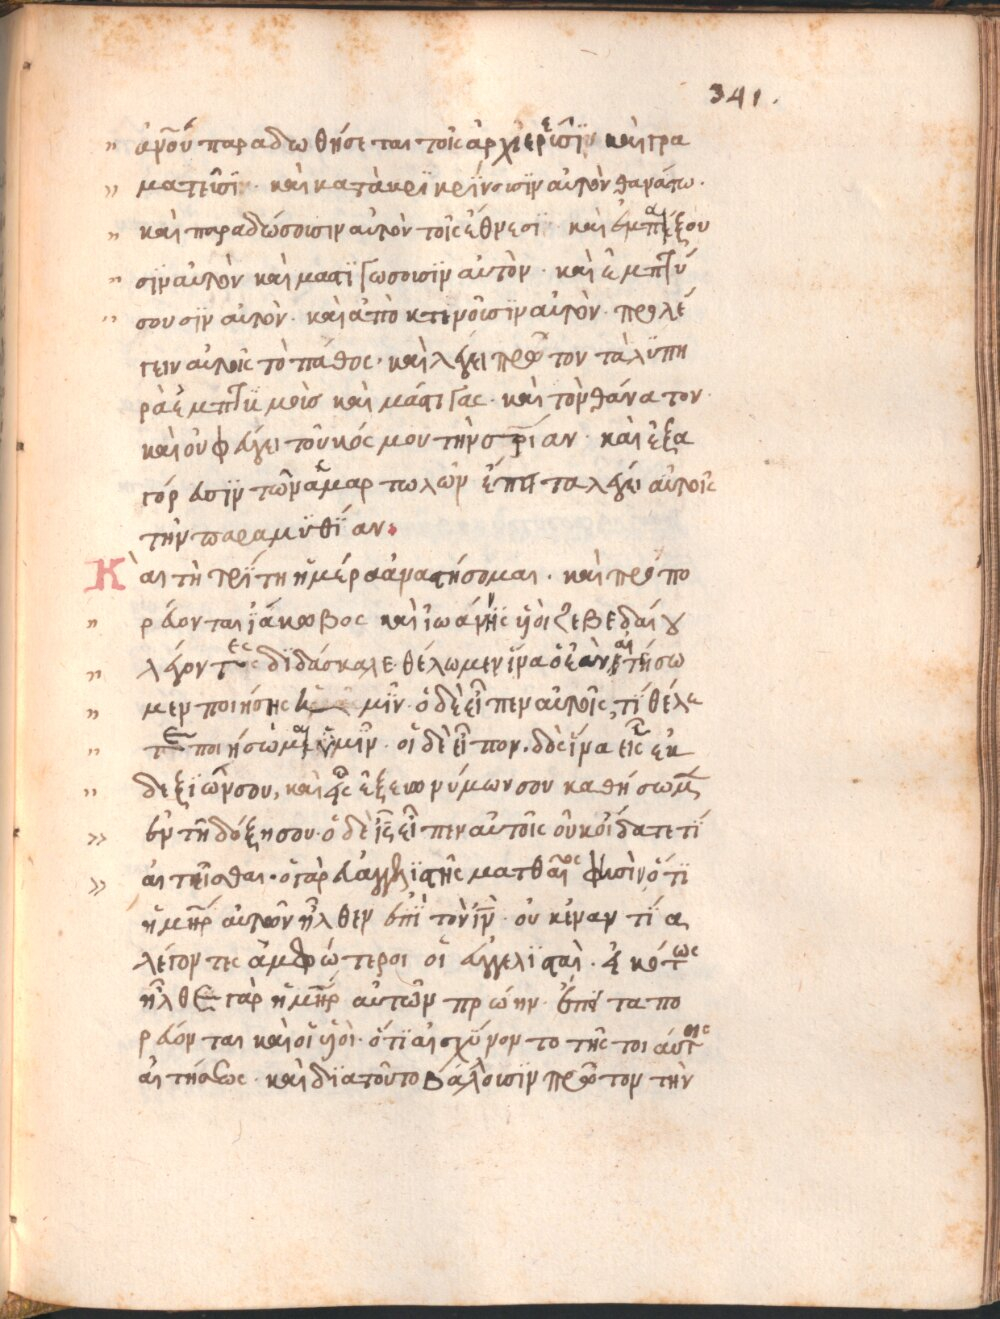 341.
ἀνοῦ παραδωθήσεται τοῖς ἀρχϊερεῦσϊν καὶ γρα
ματεῦσϊν· καὶ κατὰκρϊκρίνουσϊν αὐτὸν θανάτω·
καὶ παραδώσοισιν αὐτὸν τοῖς ἔθνεσϊ· καὶ ἐμπαίξου
σϊν αὐτὸν καὶ μαστϊγώσοισϊν αὐτὸν· καὶ ἐμπτύ
σουσϊν αὐτὸν· καὶ ἀπὸκτενοῖσϊν αὐτὸν· προλέ
γειν αὐτοῖς τὸ πάθος· καὶ λέγει πρῶτον τὰ λϋπη
ρὰ ἐμπτϋμοὶσ καὶ μάστιγας· καὶ τὸν θάνατον
καὶ οὐ φλέγει τοῦ κόσμου τὴν σ̅ρίαν· καὶ ἐξα
γόρασϊν τῶν ἁμαρτωλῶν ἔπειτα λέγει αὐτοῖς
τὴν παραμϋθίαν·
Καὶ τὴ τρίτη ἡμέρα ἀναστήσομαι· καὶ πρόπο
ρεύονται ϊάκωβος καὶ ϊωάννης ὑοὶ ζεβεδαίου
λέγοντες δϊδάσκαλε θέλομεν ἵνα ὃ ἐὰν αἰτήσω
μεν ποιήσης ἡμῖν· ὁ δὲ εἶπεν αὐτοῖς, τί θέλε
τε ποιήσωμαι ὑμῖν· οἱ δὲ εἶπον, δὸς ἵνα εἷς ἐκ
δεξϊῶν σου, καὶ εἷς ἐξ εὐωνύμων σου καθήσωμεν
ἐν τῆ δόξη σου· ὁ δὲ ι̅ς̅ εἶπεν αὐτοῖς οὐκ οἴδατε τί
αἰτεῖσθαι· ὁ γὰρ εὐαγγελϊστὴς ματθαῖος φησὶν ὅτϊ
ἡ μη̅ρ αὐτῶν ἦλθεν ἐπϊ τὸν ι̅ν̅· οὐκ ἐναντία
λέγοντες ἀμφώτεροι οἱ εὐαγγελϊσταὶ· εἰκότως
ἦλθε γὰρ ἡ μη̅ρ αὐτῶν πρώην· ἔπειτα πο
ρεύονται καὶ οἱ ὑοὶ· ὅτϊ αἰσχύνοντο τῆς τοιαύτης
αἰτήσεως· καὶ δϊατοῦτο βάλοισϊν πρῶτον τὴν